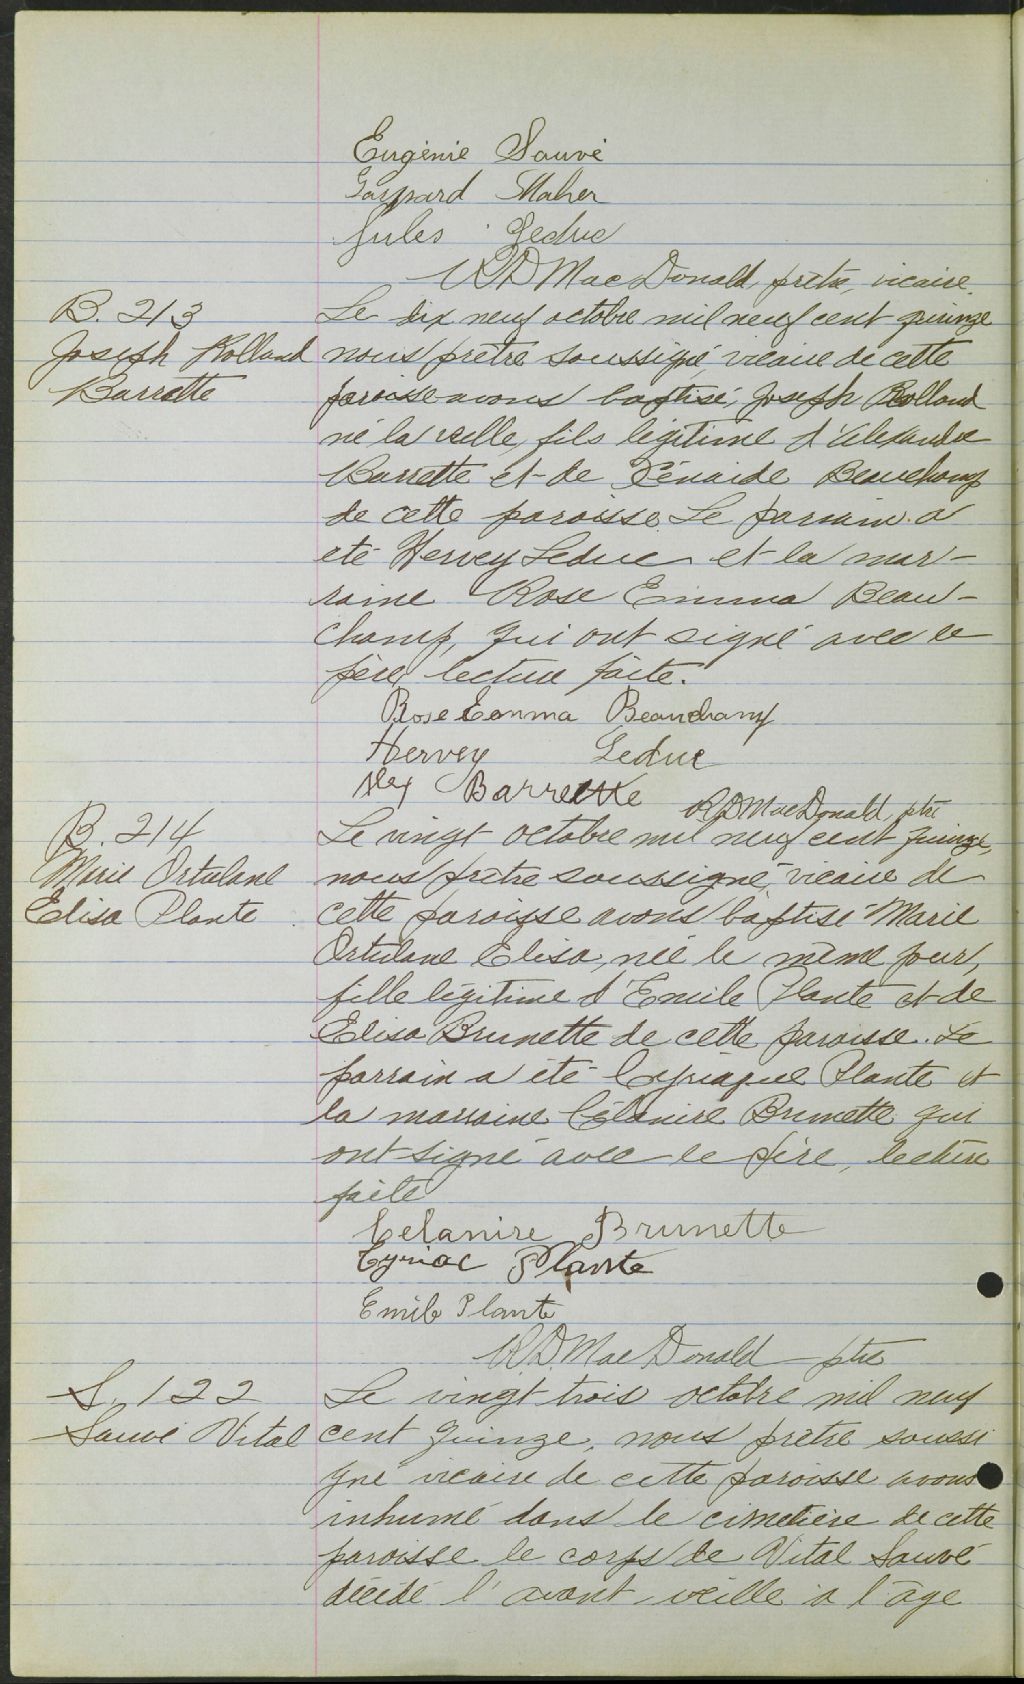 Eugénie Sauvé
Gaspard Maher
Jules Leduc
R D MacDonald, prêtre, vicaire.
B. 213
Joseph Rolland
Barrette
Le dix neuf octobre mil neuf cent quinze
nous prêtre soussigné, vicaire de cette
paroisse avons baptisé, Joseph Rolland
né la veille, fils légitime d'Alexandre
Barrette et de Zénaide Beauchamp
de cette paroisse. Le parrain a
été Hervey Leduc et la mar-
raine Rose Emma Beau-
champ, qui ont signé avec le
père, lecture faite.
Rose Emma Beauchamp
Hervey Leduc
Alex Barrette
R D MacDonald, ptre
B. 214
Marie Ortulane
Elisa Plante
Le vingt octobre mil neuf cent quinze,
nous prêtre soussigné, vicaire de
cette paroisse avons baptisé Marie
Ortulane Elisa, née le même jour,
fille légitime d'Emile Plante et de
Elisa Brunette de cette paroisse. Le
parrain a été Cyriaque Plante et
la marraine Célanire Brunette qui
ont signé avec le père, lecture
faite
Celanire Brunette
Cyriac Plante
Emile Plante
R D. MacDonald ptre
S. 122
Sauvé Vital
Le vingt trois octobre mil neuf
cent quinze, nous prêtre soussi
gné vicaire de cette paroisse avons
inhumé dans le cimetière de cette
paroisse le corps de Vital Sauvé
décédé l'avant-veille à l'âge